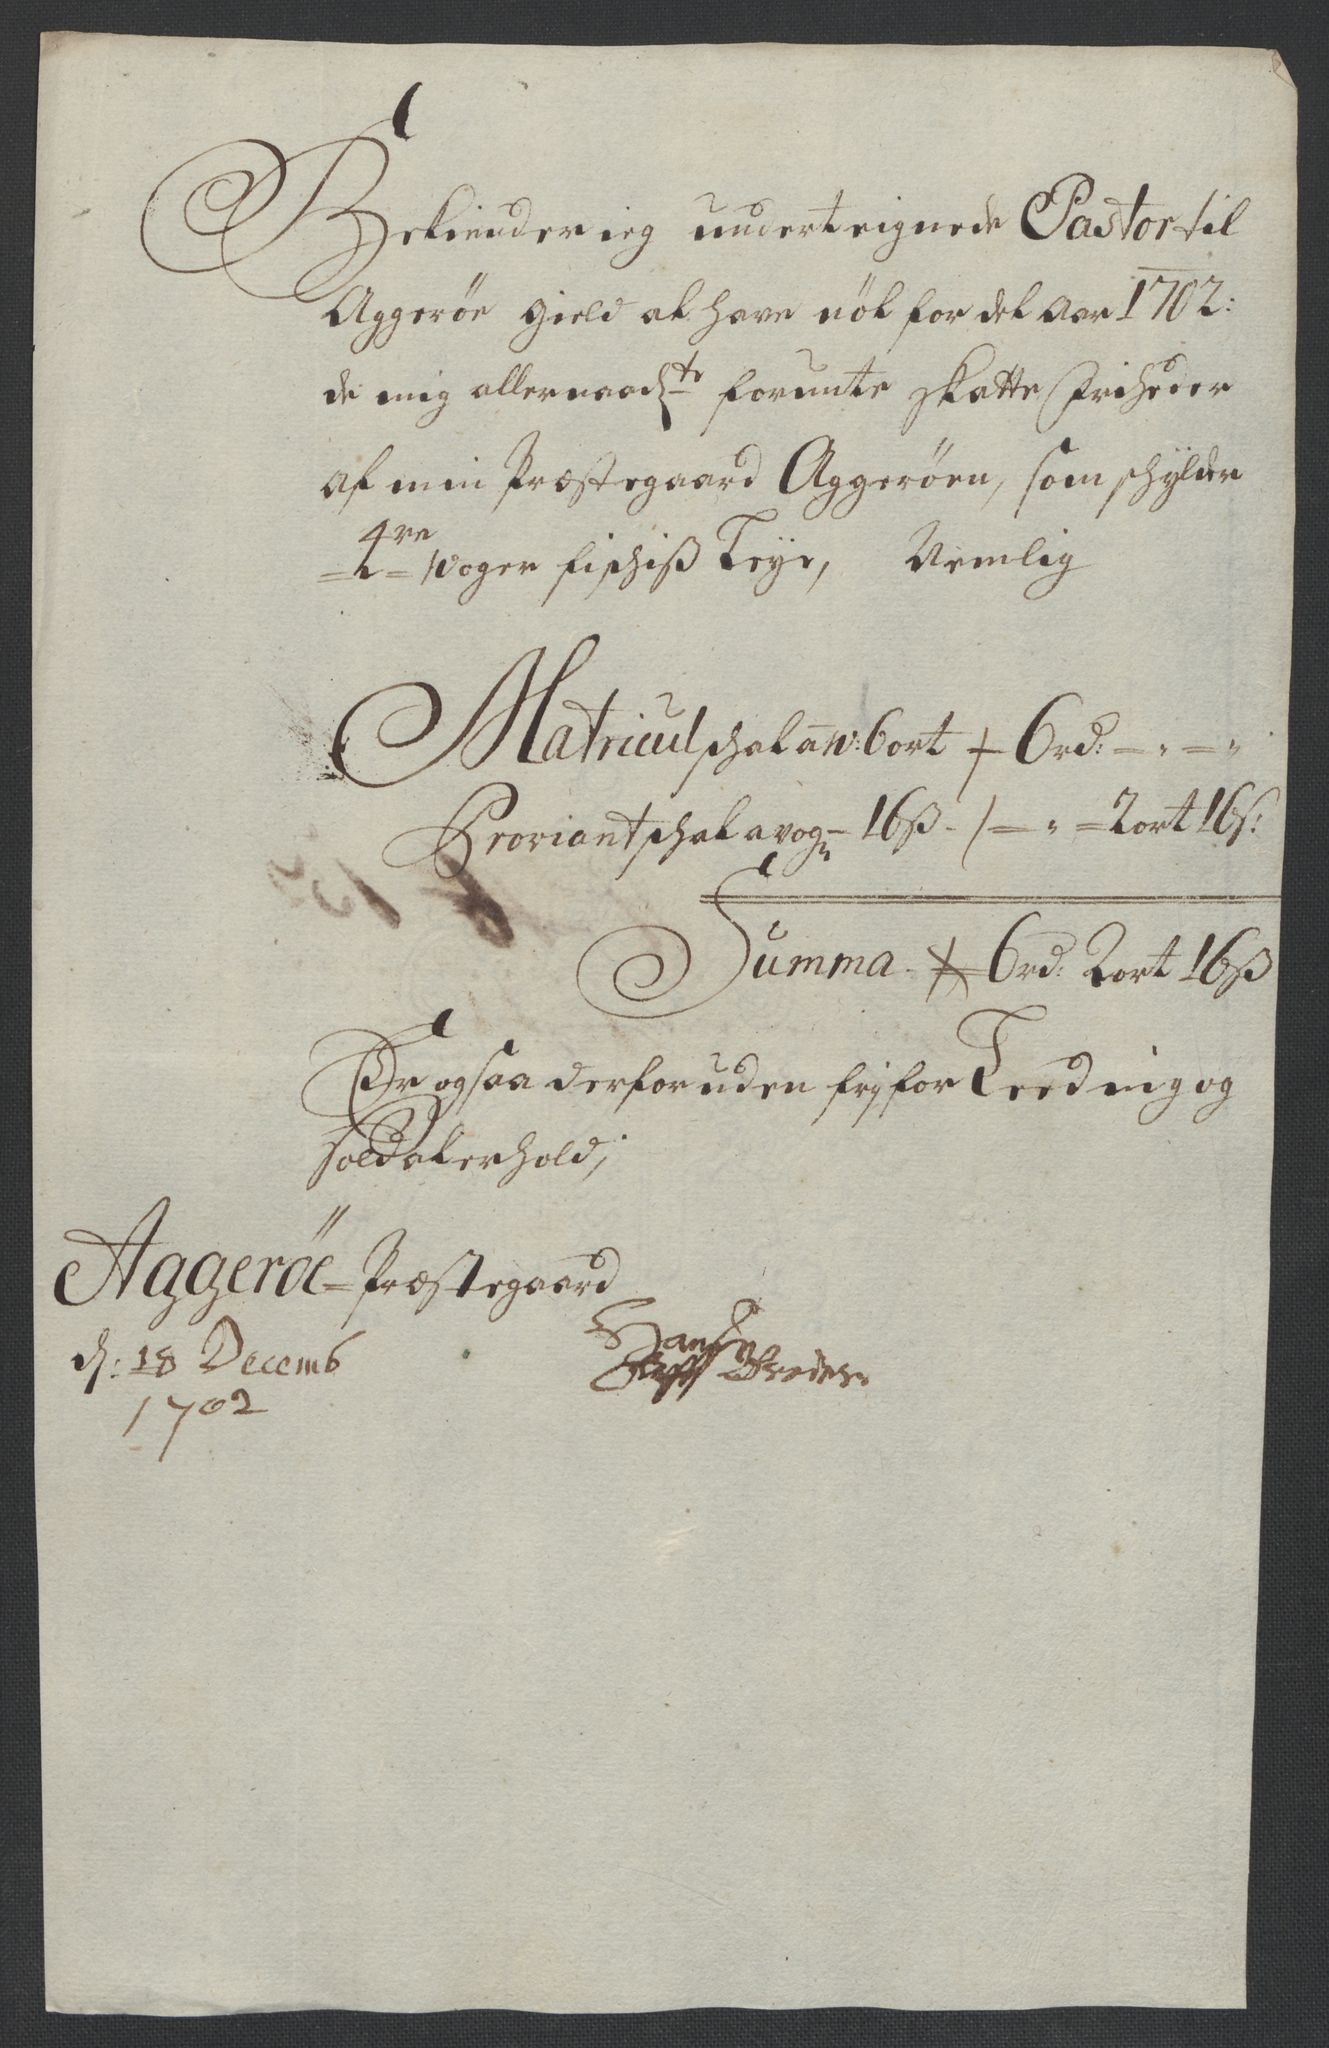 Bekiender ieg underteignede Pastor til
Aggerøe Gield at have nöt for det Aar 1702:
de mig allernaadste forunte Skatte Friheder
af min Præstegaard Aggerøen, som schylder
=4re= woger fischiß Leye, Nemlig
Matricul schat a w: 6 ort 6 rd: – „ – „
Proviant schat a vogn 16 ß – „ – 2 ort 16 ß:
Summa 6 rd: 2 ort 16 ß
Er ogsaa der foruden frj for Leedning og
Soldaterhold;
Aggerøe Præstegaard
d: 18 Decemb
1702